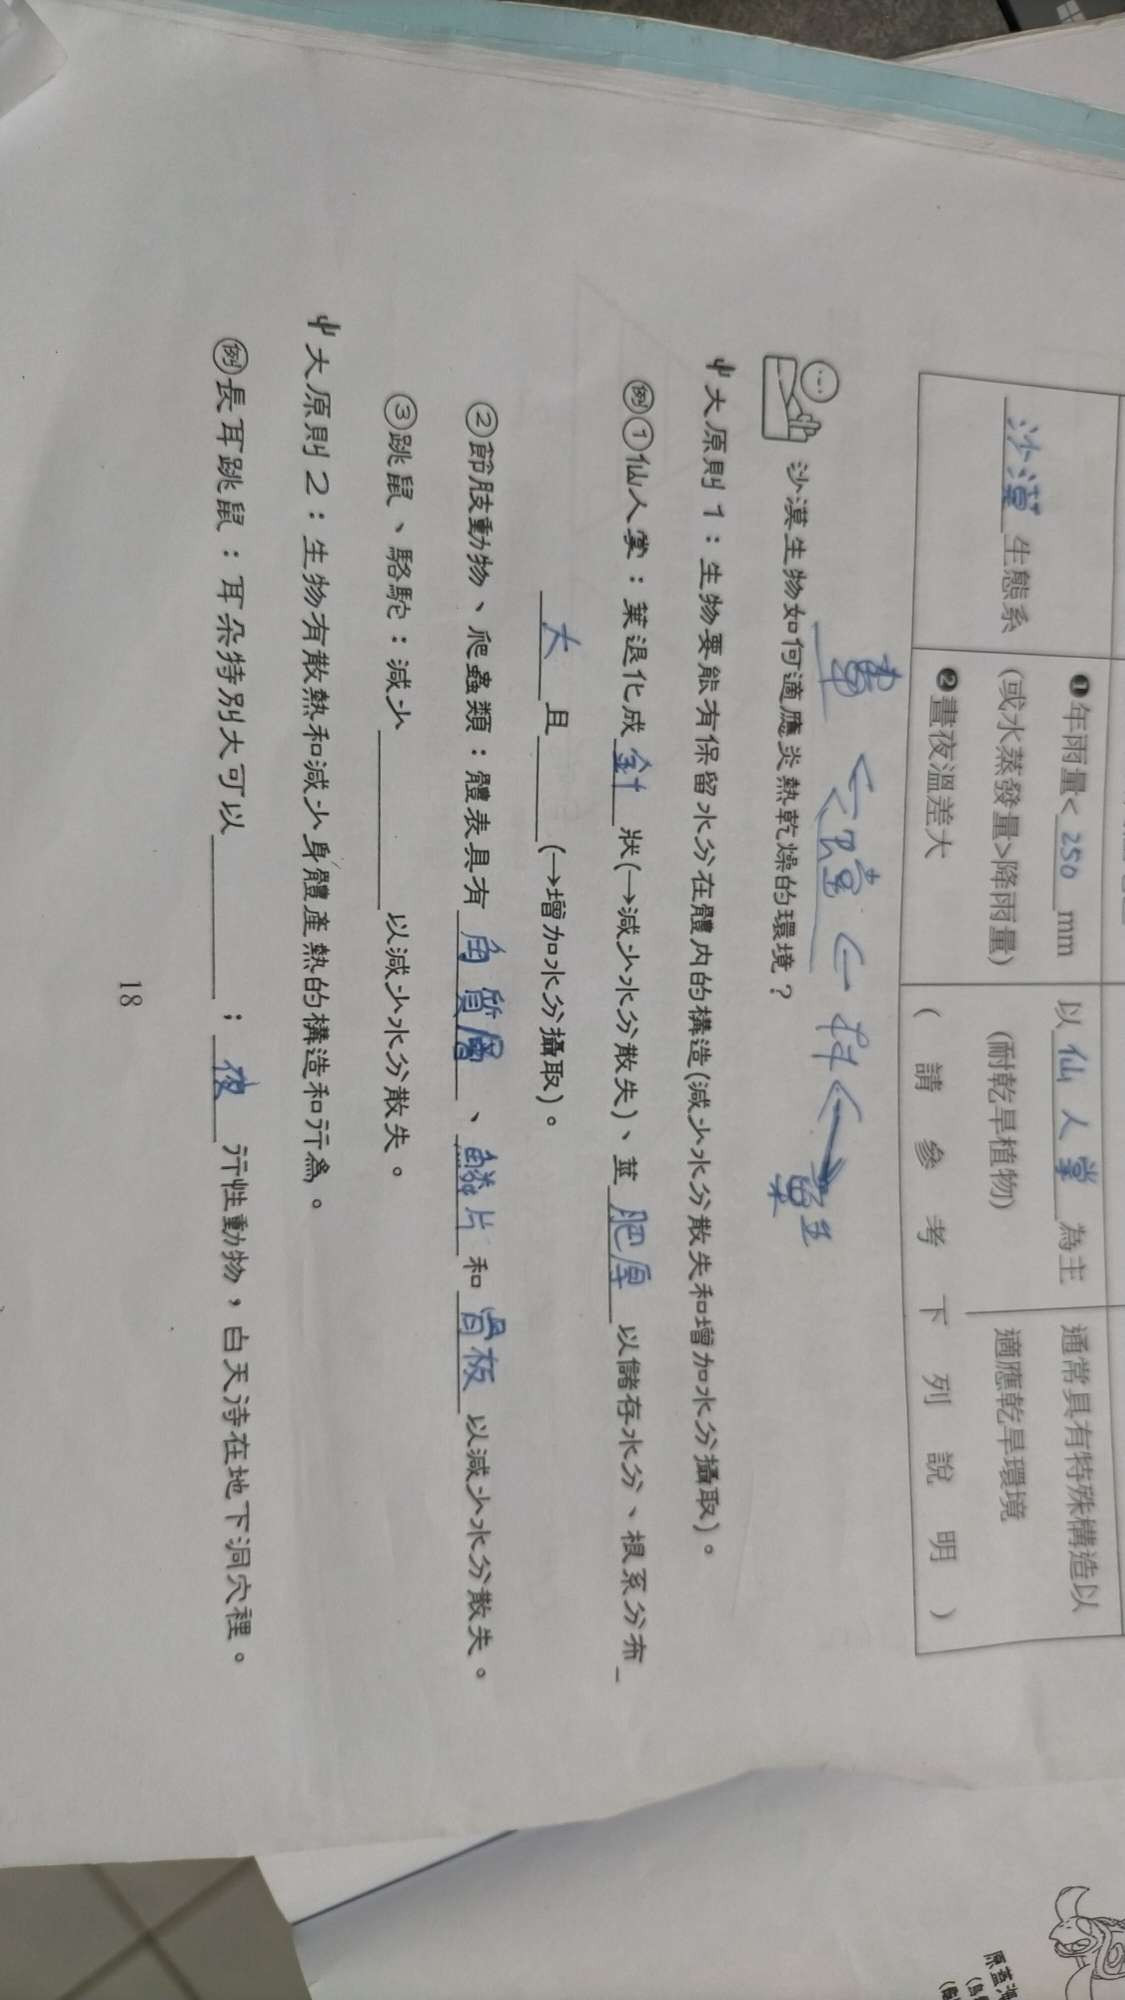 沙漠生態系
❶年雨量<250 mm
(或水蒸發量>降雨量)
❷晝夜溫差大
以仙人掌為主
(耐乾旱植物)
通常具有特殊構造以
適應乾旱環境
(請參考下列說明)
沙漠生物如何適應炎熱乾燥的環境?
大原則1:生物要能有保留水分在體內的構造(減少水分散失和增加水分攝取)。
例①仙人掌:葉退化成針狀(→減少水分散失)、莖肥厚以儲存水分、根系分布
大且______(→增加水分攝取)。
②節肢動物、爬蟲類:體表具有角質層、鱗片和骨板以減少水分散失。
③跳鼠、駱駝:減少__________以減少水分散失。
大原則2:生物有散熱和減少身體產熱的構造和行為。
例長耳跳鼠:耳朵特別大可以__________;夜行性動物,白天待在地下洞穴裡。
18